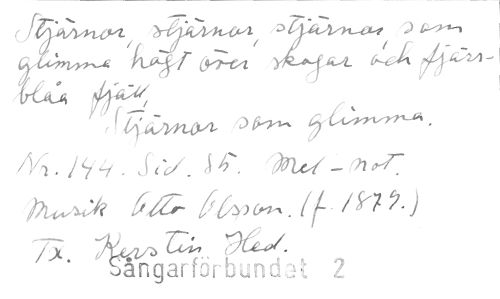 Stjärnor, stjärnor, stjärnor, som
glimma högt över skogar och fjärr-
blåa fjäll,
Stjärnor som glimma.
Nr. 144. Sid. 85. Mel-not.
Musik Otto Olsson. (f. 1879.)
Tx. Kerstin Hed.
Sångarförbundet 2